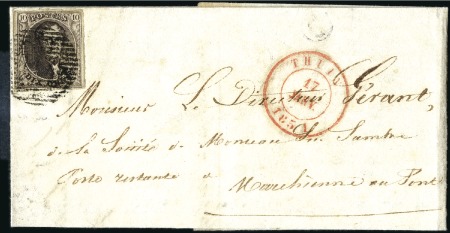 10 POSTES 10
THUIN
17
185
Monsieur Le Directeur Gérant,
de la Société de Monceau sur Sambre
Poste restante à
Marchienne au Pont